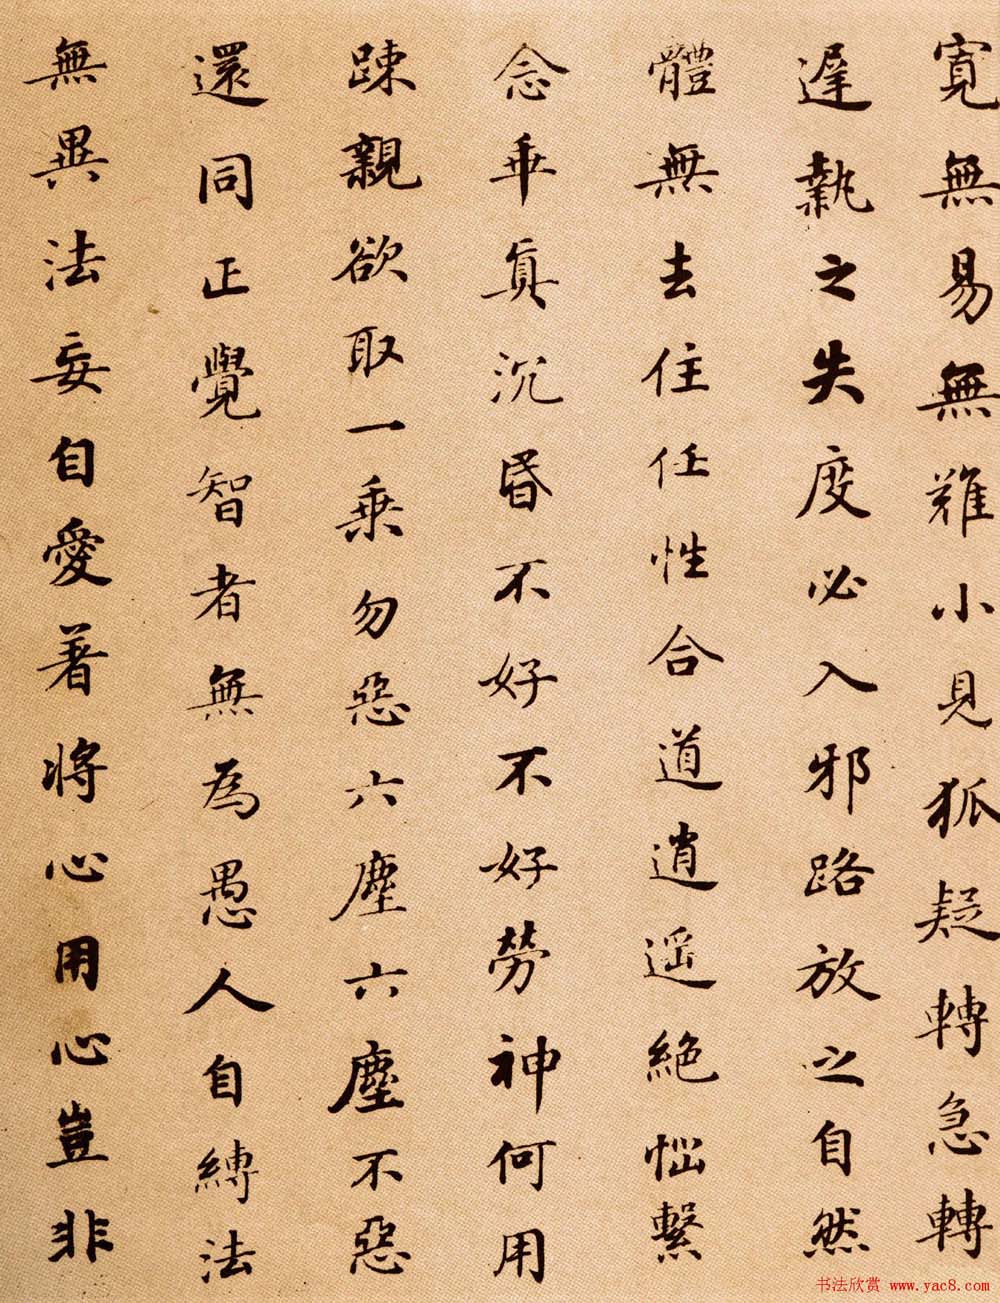 寬無易無難小見狐疑轉急轉
遲執之失度必入邪路放之自然
體無去住任性合道逍遥絶惱繫
念乖真沉昏不好不好勞神何用
踈親欲取一乘勿惡六塵六塵不惡
還同正覺智者無為愚人自縛法
無異法妄自愛著將心用心豈非
书法欣赏 www.yac8.com